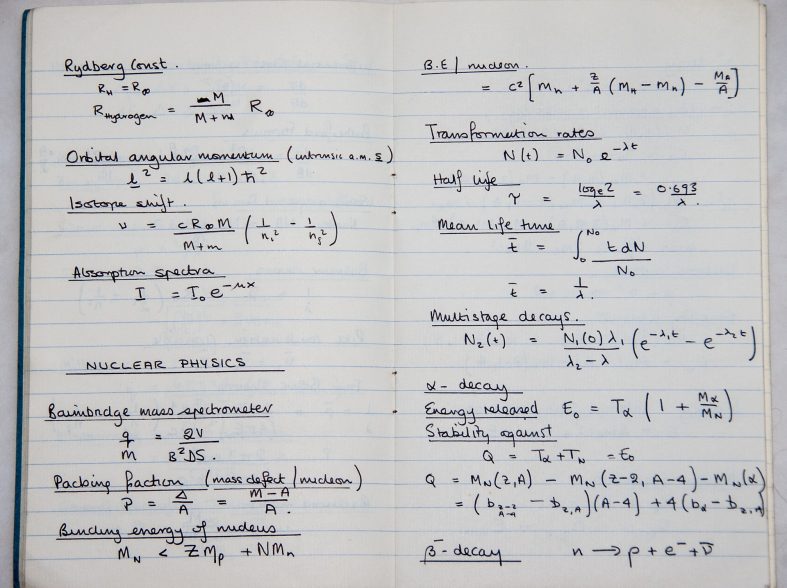 Rydberg Const.
R_H = R_∞
R_Hydrogen = M / M + m R_∞
Orbital angular momentum (intrinsic a.m. s)
l² = l(l+1)ħ²
Isotope shift.
ν = cR_∞M / M+m (1/n_i² - 1/n_f²)
Absorption spectra
I = I₀e^-μx
NUCLEAR PHYSICS
Bainbridge mass spectrometer
q/m = 2V / B²DS.
Packing fraction (mass defect/nucleon)
P = Δ/A = M-A / A.
Binding energy of nucleus
M_N < ZM_p + NM_n
B.E/nucleon.
= c² [m_n + Z/A (m_H - m_n) - M_A/A]
Transformation rates
N(t) = N₀ e^-λt
Half life
τ = log_e 2 / λ = 0.693 / λ.
Mean life time
t̄ = ∫₀^N₀ t dN / N₀
t̄ = 1/λ.
Multistage decays.
N₂(t) = N₁(0)λ₁ / λ₂-λ (e^-λ₁t - e^-λ₂t)
α-decay
Energy released E₀ = T_α (1 + M_α/M_N)
Stability against
Q = T_α + T_N = E₀
Q = M_N(Z,A) - M_N(Z-2, A-4) - M_N(α)
= (b_Z-2,A-4 - b_Z,A)(A-4) + 4(b_α - b_Z,A)
β⁻-decay n → p + e⁻ + ν̄